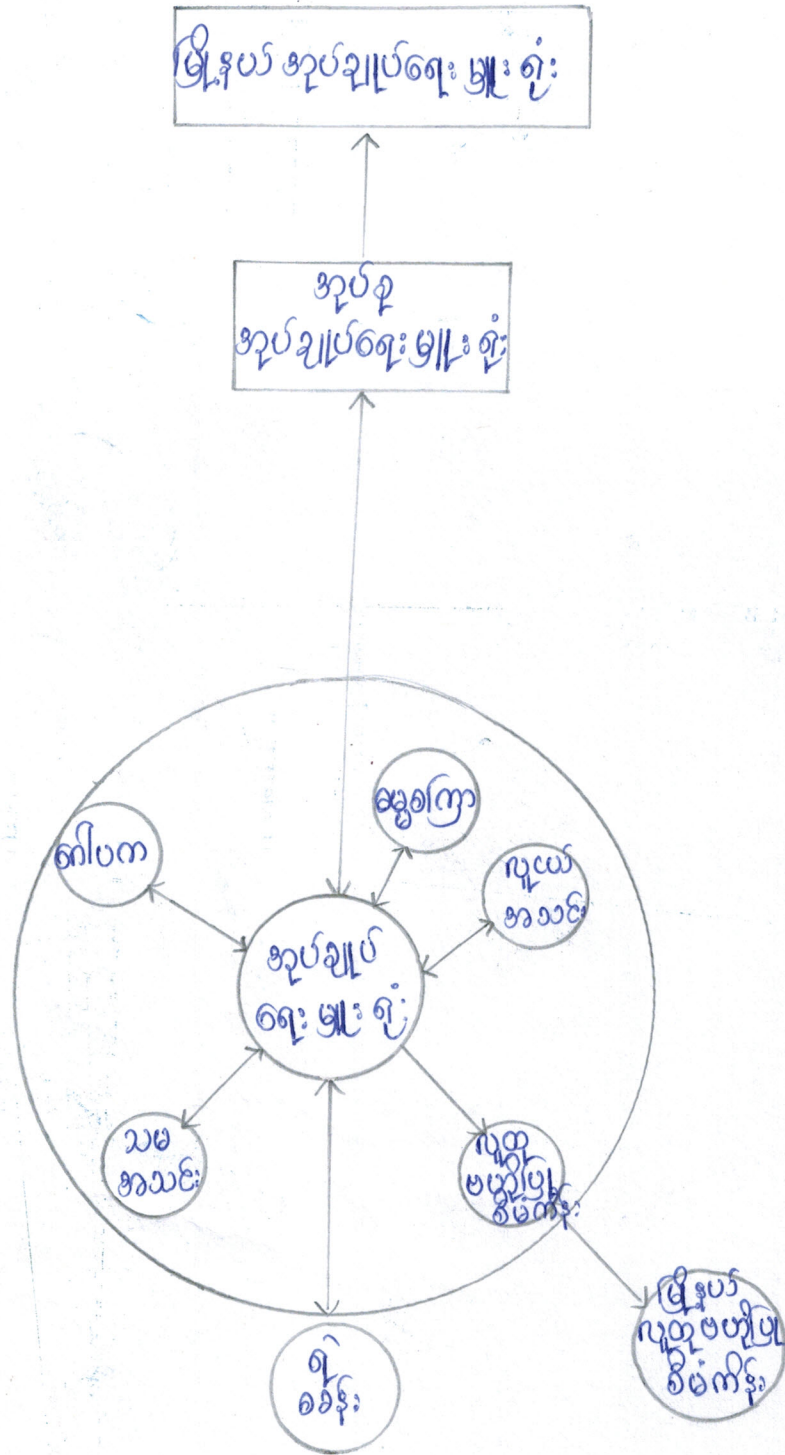 မြို့နယ် အုပ်ချုပ်ရေး မှူး ရုံး
အုပ်စု
အုပ်ချုပ်ရေး မှူး ရုံး
ဓမ္မစကြာ
ဂေါပက
လူငယ်
အသင်း
အုပ်ချုပ်
ရေး မှူး ရုံး
သမ
အသင်း
လူထု
ဗဟိုပြု
စီမံကိန်း
မြို့နယ်
လူထုဗဟိုပြု
စီမံကိန်း
ရဲ
စခန်း